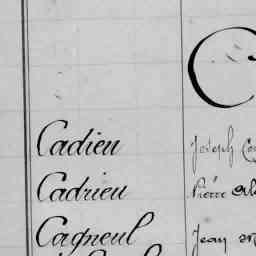 C
Cadieu Joseph
Cadrieu Pierre
Cagneul Jean